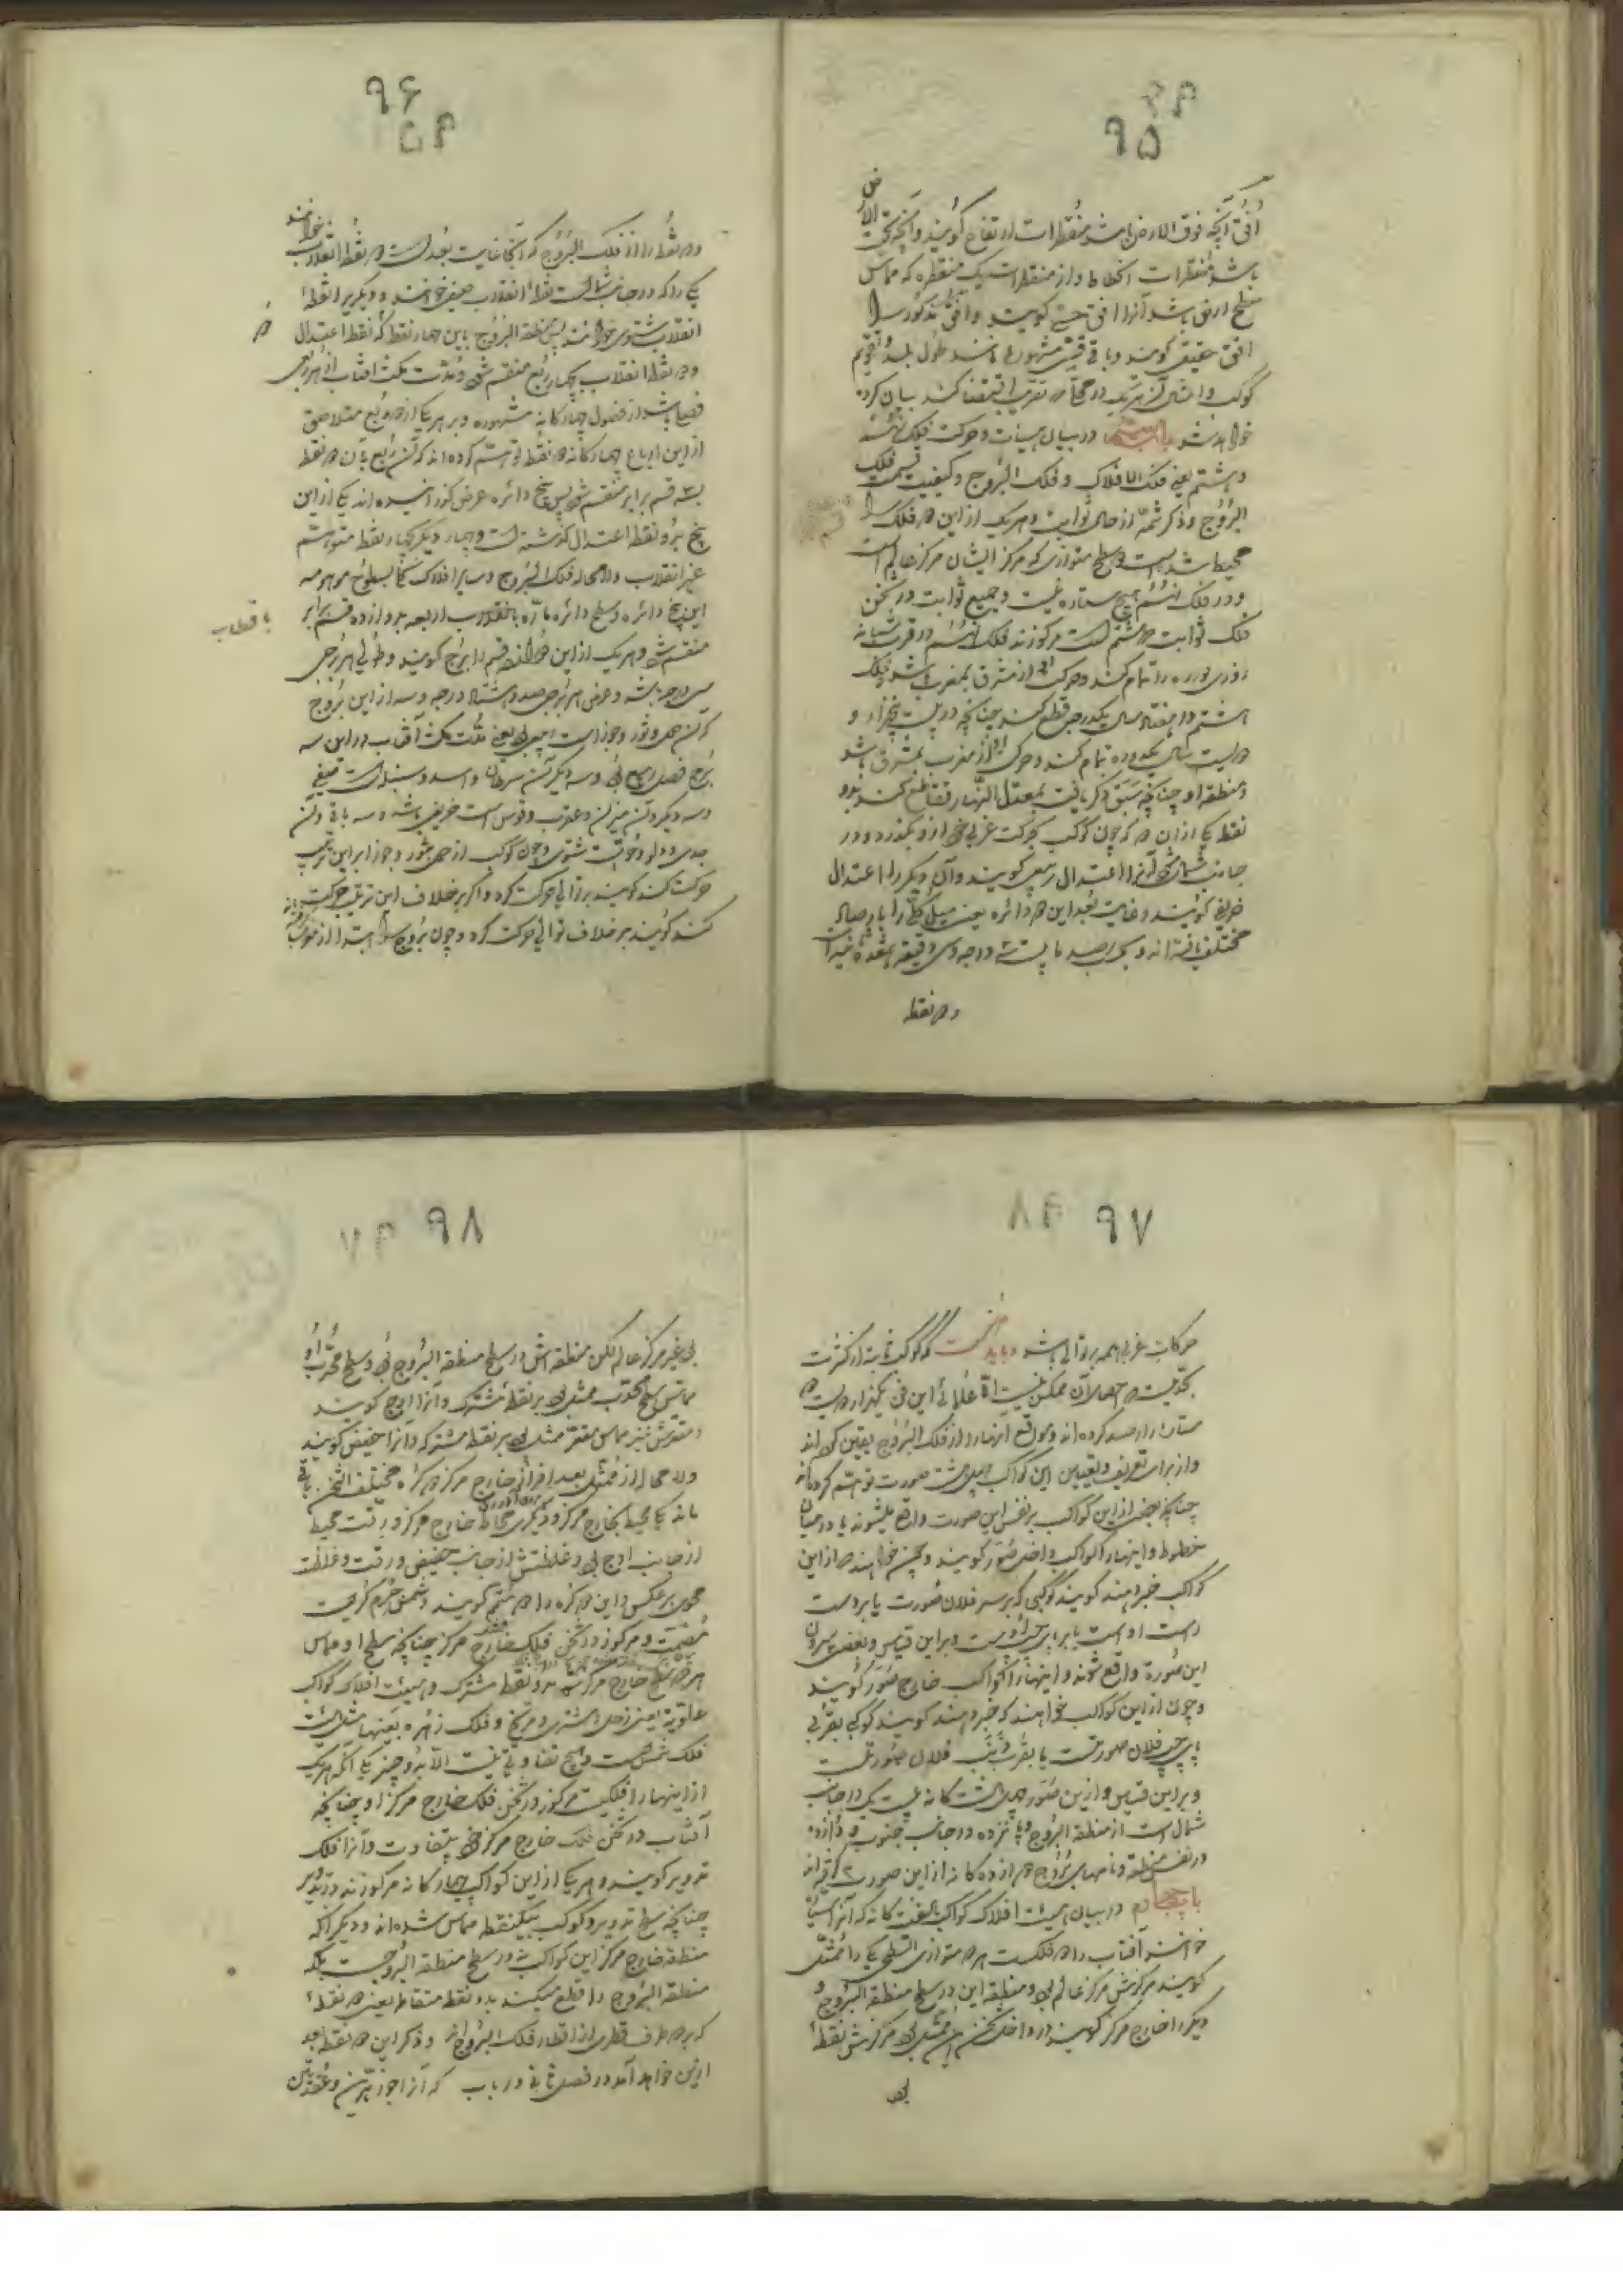 ۹۵
افق آنچه فوق الارض باشد مقنطرات ارتفاع گویند و آنچه تحت الارض
باشد مقنطرات انحطاط و از مقنطرات یک مقنطره که مماس
سطح ارض باشد آنرا افق حسی گویند و افق مذکور را
افق حقیقی گویند و باقی قسی مشهوره مانند طول بلد و تقویم
کوکب و امثال آن هر یک در محلی که تقریب اقتضا کند بیان کرده
خواهد شد در بیان هیئات و حرکت فلک نهم
و هشتم یعنی فلک الافلاک و فلک البروج و کیفیت قسمت فلک
البروج و ذکر شمه از حال ثوابت و هر یک از این دو فلک را
محیط شده است دو سطح متوازی که مرکز ایشان مرکز عالم است
و در فلک نهم هیچ ستاره نیست و جمیع ثوابت در ثخن
فلک ثوابت که هشتم است مرکوزند فلک نهم در قرب شبانه
روزی دوره را تمام کند و حرکت او از مشرق بمغرب باشد و فلک
هشتم در هفتاد سال یکدرجه قطع کند چنانچه در بیست و پنجهزار و
دویست سال یکدوره تمام کند و حرکت او از مغرب بمشرق باشد
و منطقه او چنانچه سبق ذکر یافت بمعدل النهار تقاطع کند بدو
نقطه یکی از آن دو که چون کوکب بحرکت غربی خود از او بگذرد و در
جانب شمال شود آنرا اعتدال ربیعی گویند و آن دیگر را اعتدال
خریفی گویند و غایت بعد این دو دائره یعنی میل کلی را بارصاد
مختلف یافته اند و بحسب رصد ما بیست و سه درجه و سی دقیقه و هفده ثانیه است
و دو نقطه
۹۶
و دو نقطه را از فلک البروج که آنجا غایت بعد است دو نقطه انقلاب خوانند
یکی را که در جانب شمال است نقطه انقلاب صیفی خوانند و دیگریرا نقطه
انقلاب شتوی خوانند پس منطقة البروج باین چهار نقطه که دو نقطه اعتدال
و دو نقطه انقلاب بچهار ربع منقسم شود و مدت مکث آفتاب از هر ربعی
فصلی باشد از فصول چهارگانه مشهوره و بر هر یک از دو ربع متلاصق
از این ارباع چهارگانه دو نقطه توهم کرده اند که آن ربع بآن دو نقطه
بسه قسم برابر منقسم شود پس پنج دائره عرض گذرانیده اند یکی از این
پنج بدو نقطه اعتدال گذشته است و چهار دیگر بچهار نقطه متوهم
غیر انقلاب ولامحاله فلک البروج و سایر افلاک بسطوح موهومه
این پنج دائره و سطح دائره ماره باقطاب اربعه بدوازده قسم برابر
منقسم شود و هر یک از این دوازده قسم را برج گویند و طول هر برجی
سی درجه باشد و عرض هر برجی صد و هشتاد درجه و سه از این بروج
که آن حمل و ثور و جوزا است ربیعی بود یعنی مدت مکث آفتاب در این سه
برج فصل ربیع بود و سه دیگر آن سرطان و اسد و سنبله است صیفی
و سه دیگر و آن میزان و عقرب و قوس است خریفی باشد و سه باقی و آن
جدی و دلو و حوت شتوی و چون کوکب از حمل بثور و جوزا بر این ترتیب
حرکت کند گویند بر توالی حرکت کرد و اگر بر خلاف این ترتیب حرکت
کند گویند بر خلاف توالی حرکت کرد و چون بروج را ابتدا از مغرب
۹۷
حرکات غربی همه بر توالی باشد و باید دانست که کواکب ثابته از کثرت
بحدیست که حصر آن ممکن نیست اما علمای این فن یکهزار و بیست و دو
ستاره را رصد کرده اند و مواقع آنها را از فلک البروج یقین کرده اند
و از برای تعریف و تعیین این کواکب چهل و هشت صورت توهم کرده اند
چنانچه بعضی از این کواکب بر نفس این صورت واقع میشوند یا در میان
خطوط و اینها را کواکب داخل صور گویند و چون خواهند که از این
کواکب خبر دهند گویند کوکبی که بر سر فلان صورت یا بر دست
راست اوست یا بر پای چپ اوست و بر این قیاس و بعضی بیرون
این صورة واقع شوند و اینها را کواکب خارج صور گویند
و چون از این کواکب خواهند که خبر دهند گویند کوکب بقرب
پای چپ فلان صورتست یا بقرب ذنب فلان صورتست
و بر این قیاس و از این صور چهل و هشت گانه بیست و یک در جانب
شمال است از منطقة البروج و پانزده در جانب جنوب و دوازده
در نفس منطقه و نامهای بروج دوازده گانه از این صورت گرفته اند
باب چهارم در بیان هیئت افلاک کواکب هفت گانه که آنرا سیاره
خوانند آفتاب را دو فلکست هر دو متوازی السطح یکی را ممثل
گویند مرکزش مرکز عالم بود و منطقه این در سطح منطقة البروج و
دیگر را خارج مرکز گویند در داخل ثخن این ممثل بود مرکزش نقطه
بود
۹۸
بود غیر مرکز عالم لکن منطقه اش در سطح منطقة البروج بود و سطح محدب او
مماس سطح محدب ممثل بود بر نقطه مشترک و آنرا اوج گویند
و مقعرش نیز مماس مقعر ممثل بود بر نقطه مشترکه و آنرا حضیض گویند
ولامحاله از ممثل بعد افراز خارج مرکز دو کره مختلف الثخن باقی
ماند یکی محیط بخارج مرکز و دیگری محاط خارج مرکز و رقت محیط
از جانب اوج بود و غلظتش از جانب حضیض و رقت و غلظت
محوی بر عکس و این دو کره را دو متمم گویند و شمس جرم کریست
مصمت و مرکوز در ثخن فلک خارج مرکز چنانچه سطح او مماس
هر دو سطح خارج مرکز بود بدو نقطه مشترک و هیئت افلاک کواکب
علویة یعنی زحل و مشتری و مریخ و فلک زهره بعینها مثل هیئت
فلک شمس است و هیچ تفاوتی نیست الا بدو چیز یکی آنکه هر یک
از اینها را فلکیست مرکوز در ثخن فلک خارج مرکز او چنانچه
آفتاب در ثخن فلک خارج مرکز خود بیتفاوت و آنرا فلک
تدویر گویند و هر یک از این کواکب چهارگانه مرکوزند در تدویر
چنانچه سطح تدویر و کوکب بیکنقطه مماس شده اند و دیگر آنکه
منطقه خارج مرکز این کواکب نه در سطح منطقة البروجست بلکه
منطقة البروج را قطع میکنند بدو نقطه متقاطر یعنی دو نقطه
که بر دو طرف قطری از اقطار فلک البروج اند و ذکر این دو نقطه بعد
ازین خواهد آمد در فصل ثانی در باب که آنرا جوزهرین و عقدتین